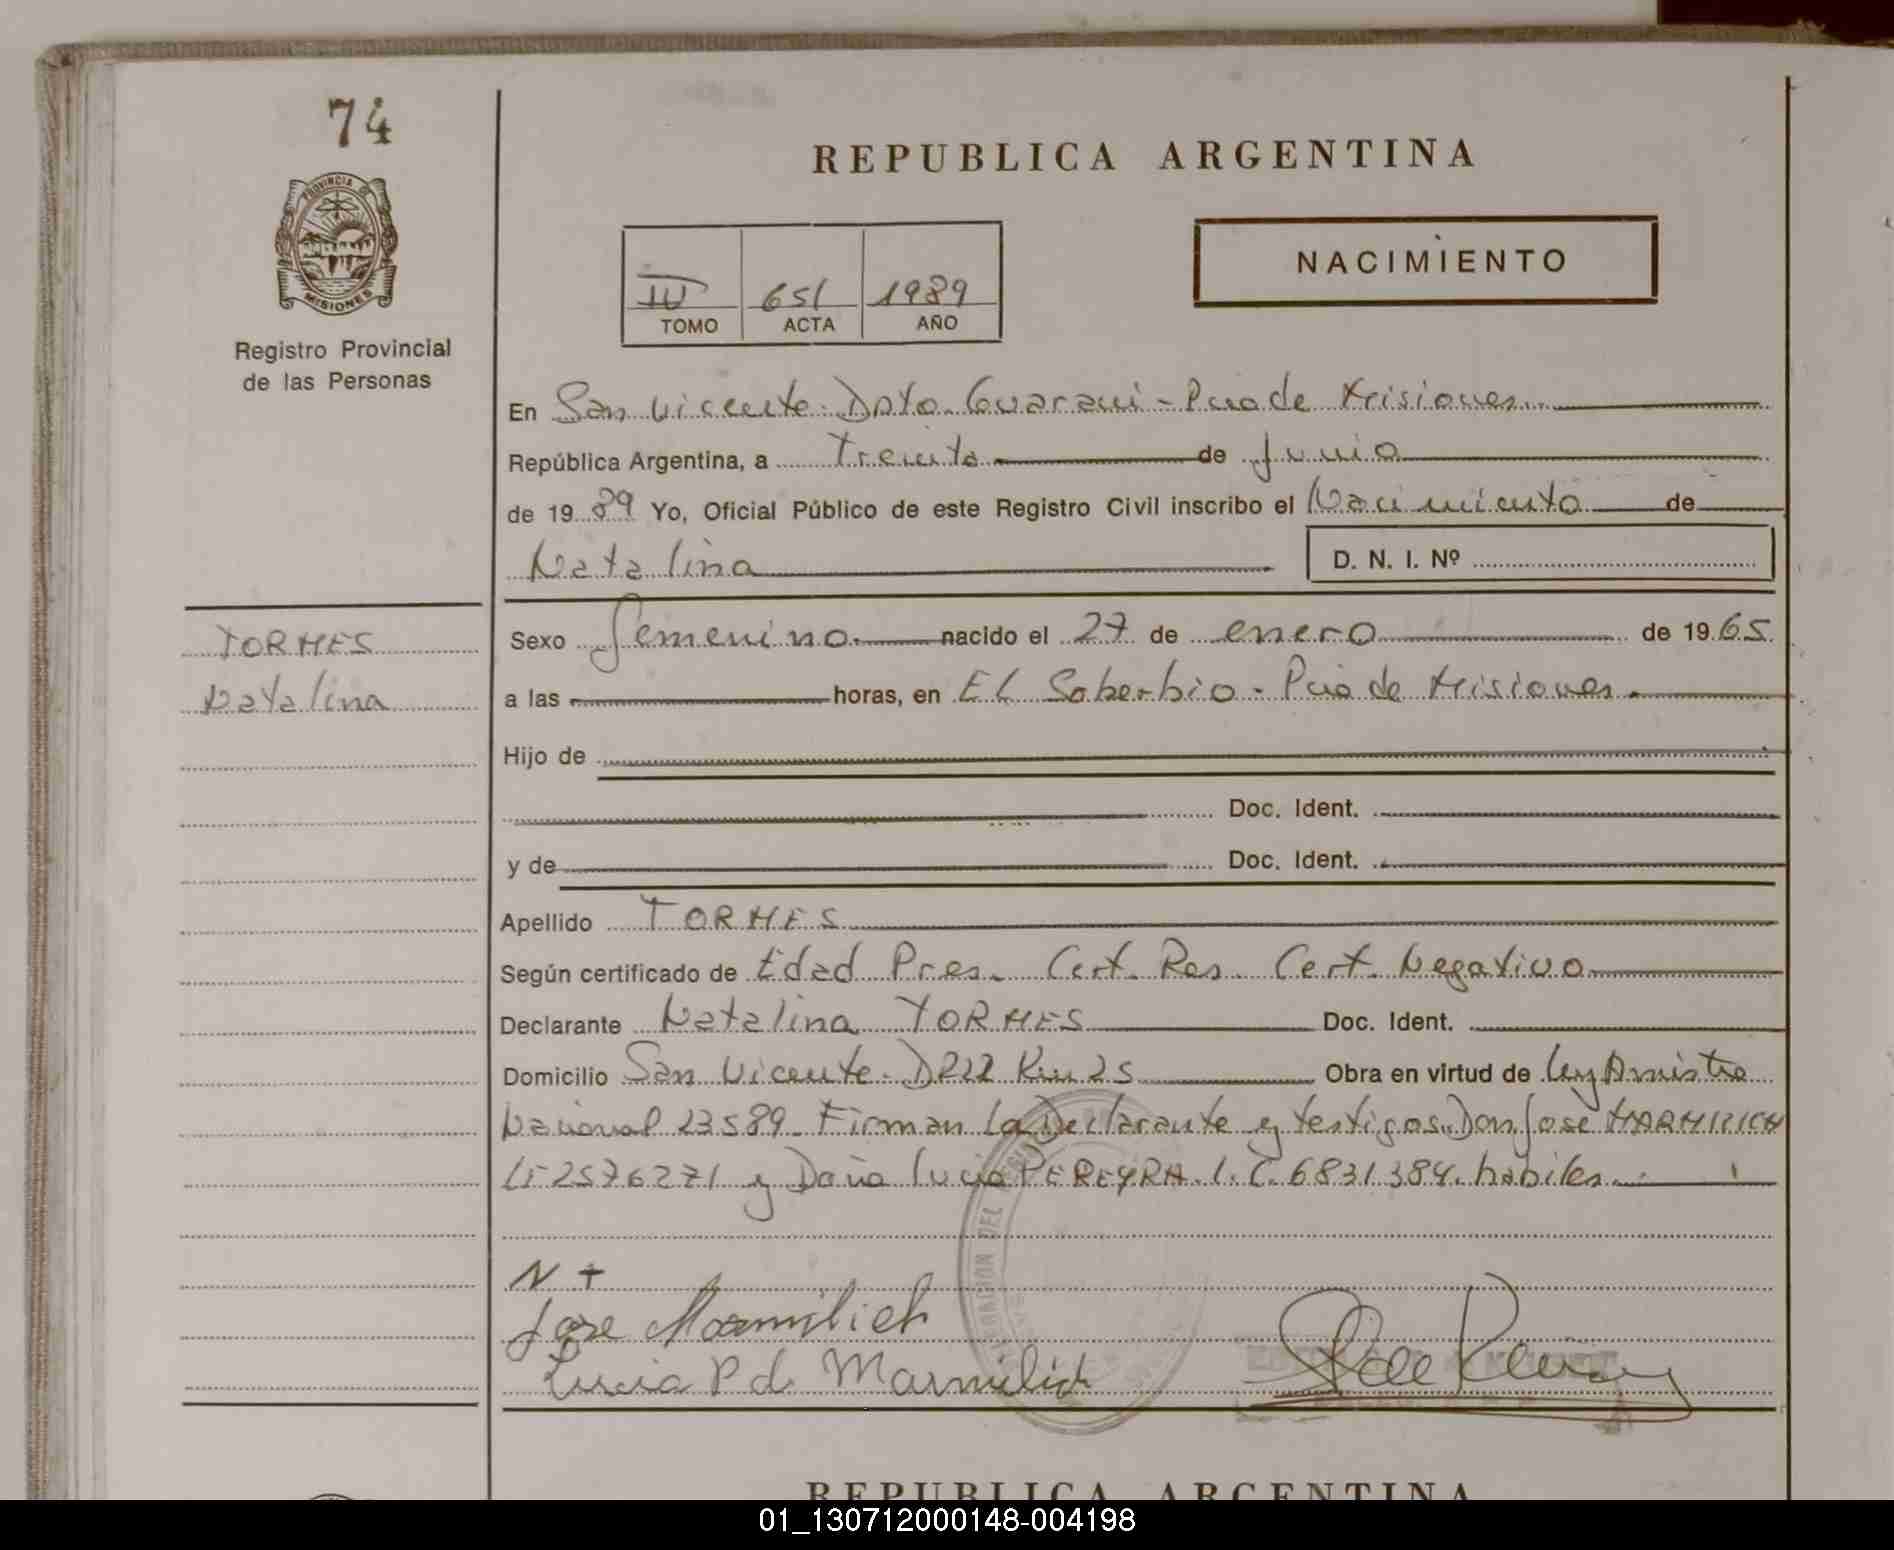 74
PROVINCIA DE
MISIONES
Registro Provincial
de las Personas
REPUBLICA ARGENTINA
NACIMIENTO
III 651 1989
TOMO ACTA AÑO
En San Vicente. Dpto. Guarani - Pcia de Misiones.
República Argentina, a Treinta de Junio
de 1989 Yo, Oficial Público de este Registro Civil inscribo el Nacimiento de
Natalina
D. N. I. Nº
TORMES
Natalina
Sexo Femenino. nacido el 27 de enero de 1965
a las horas, en El Soberbio - Pcia de Misiones.
Hijo de
Doc. Ident.
y de Doc. Ident.
Apellido TORMES
Según certificado de Edad Pres. Cert. Res. Cert. Negativo
Declarante Natalina TORMES Doc. Ident.
Domicilio San Vicente. D222 Km 25 Obra en virtud de Ley Amistia
Nacional 23589. Firman La Declarante y testigos. Don Jose MARMILICH
LE 2576271 y Doña Lucia PEREYRA. L. C. 6831.384. habiles.
N +
Jose Marmilich
Lucia P d Marmilich
REPUBLICA ARGENTINA
01_130712000148-004198